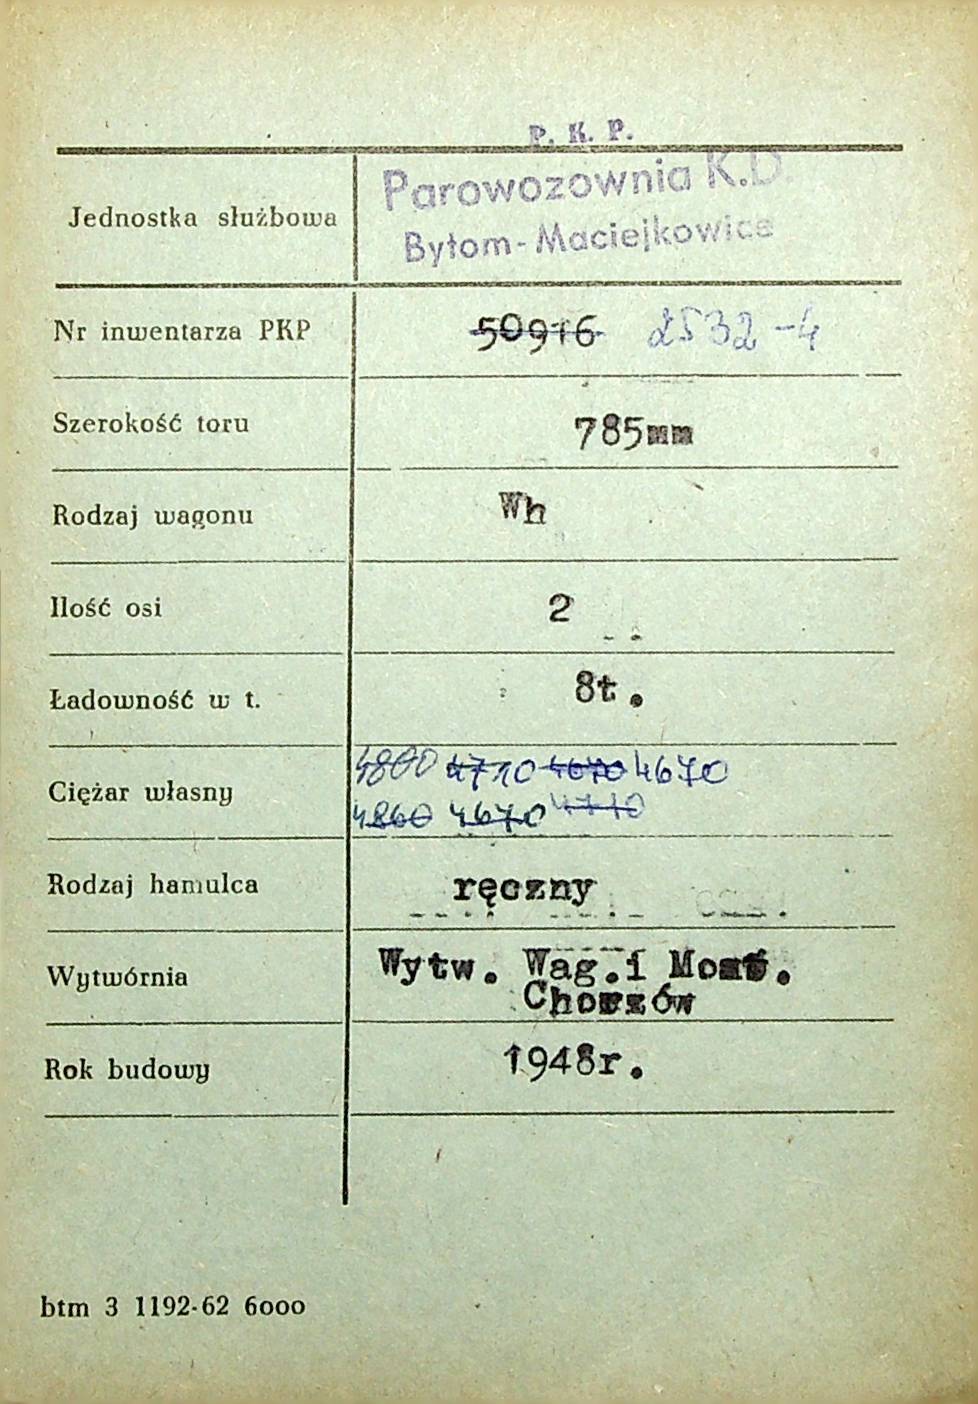 P. K. P.
Parowozownia K.D.
Jednostka służbowa
Bytom-Maciejkowice
Nr inwentarza PKP 50916 2532-4
Szerokość toru 785mm
Rodzaj wagonu Wh
Ilość osi 2
Ładowność w t. 8t.
4800 4710 4670 4670
Ciężar własny
4860 4670 4710
Rodzaj hamulca ręczny
Wytwórnia Wytw. Wag.i Most.
Chorzów
Rok budowy 1948r.
btm 3 1192-62 6000